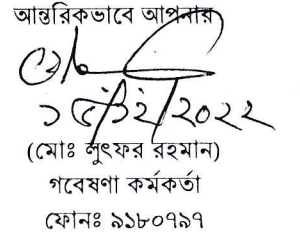 আন্তরিকভাবে আপনার
(মোঃ লুৎফর রহমান)
গবেষণা কর্মকর্তা
ফোনঃ ৯১৮০৭৯৭